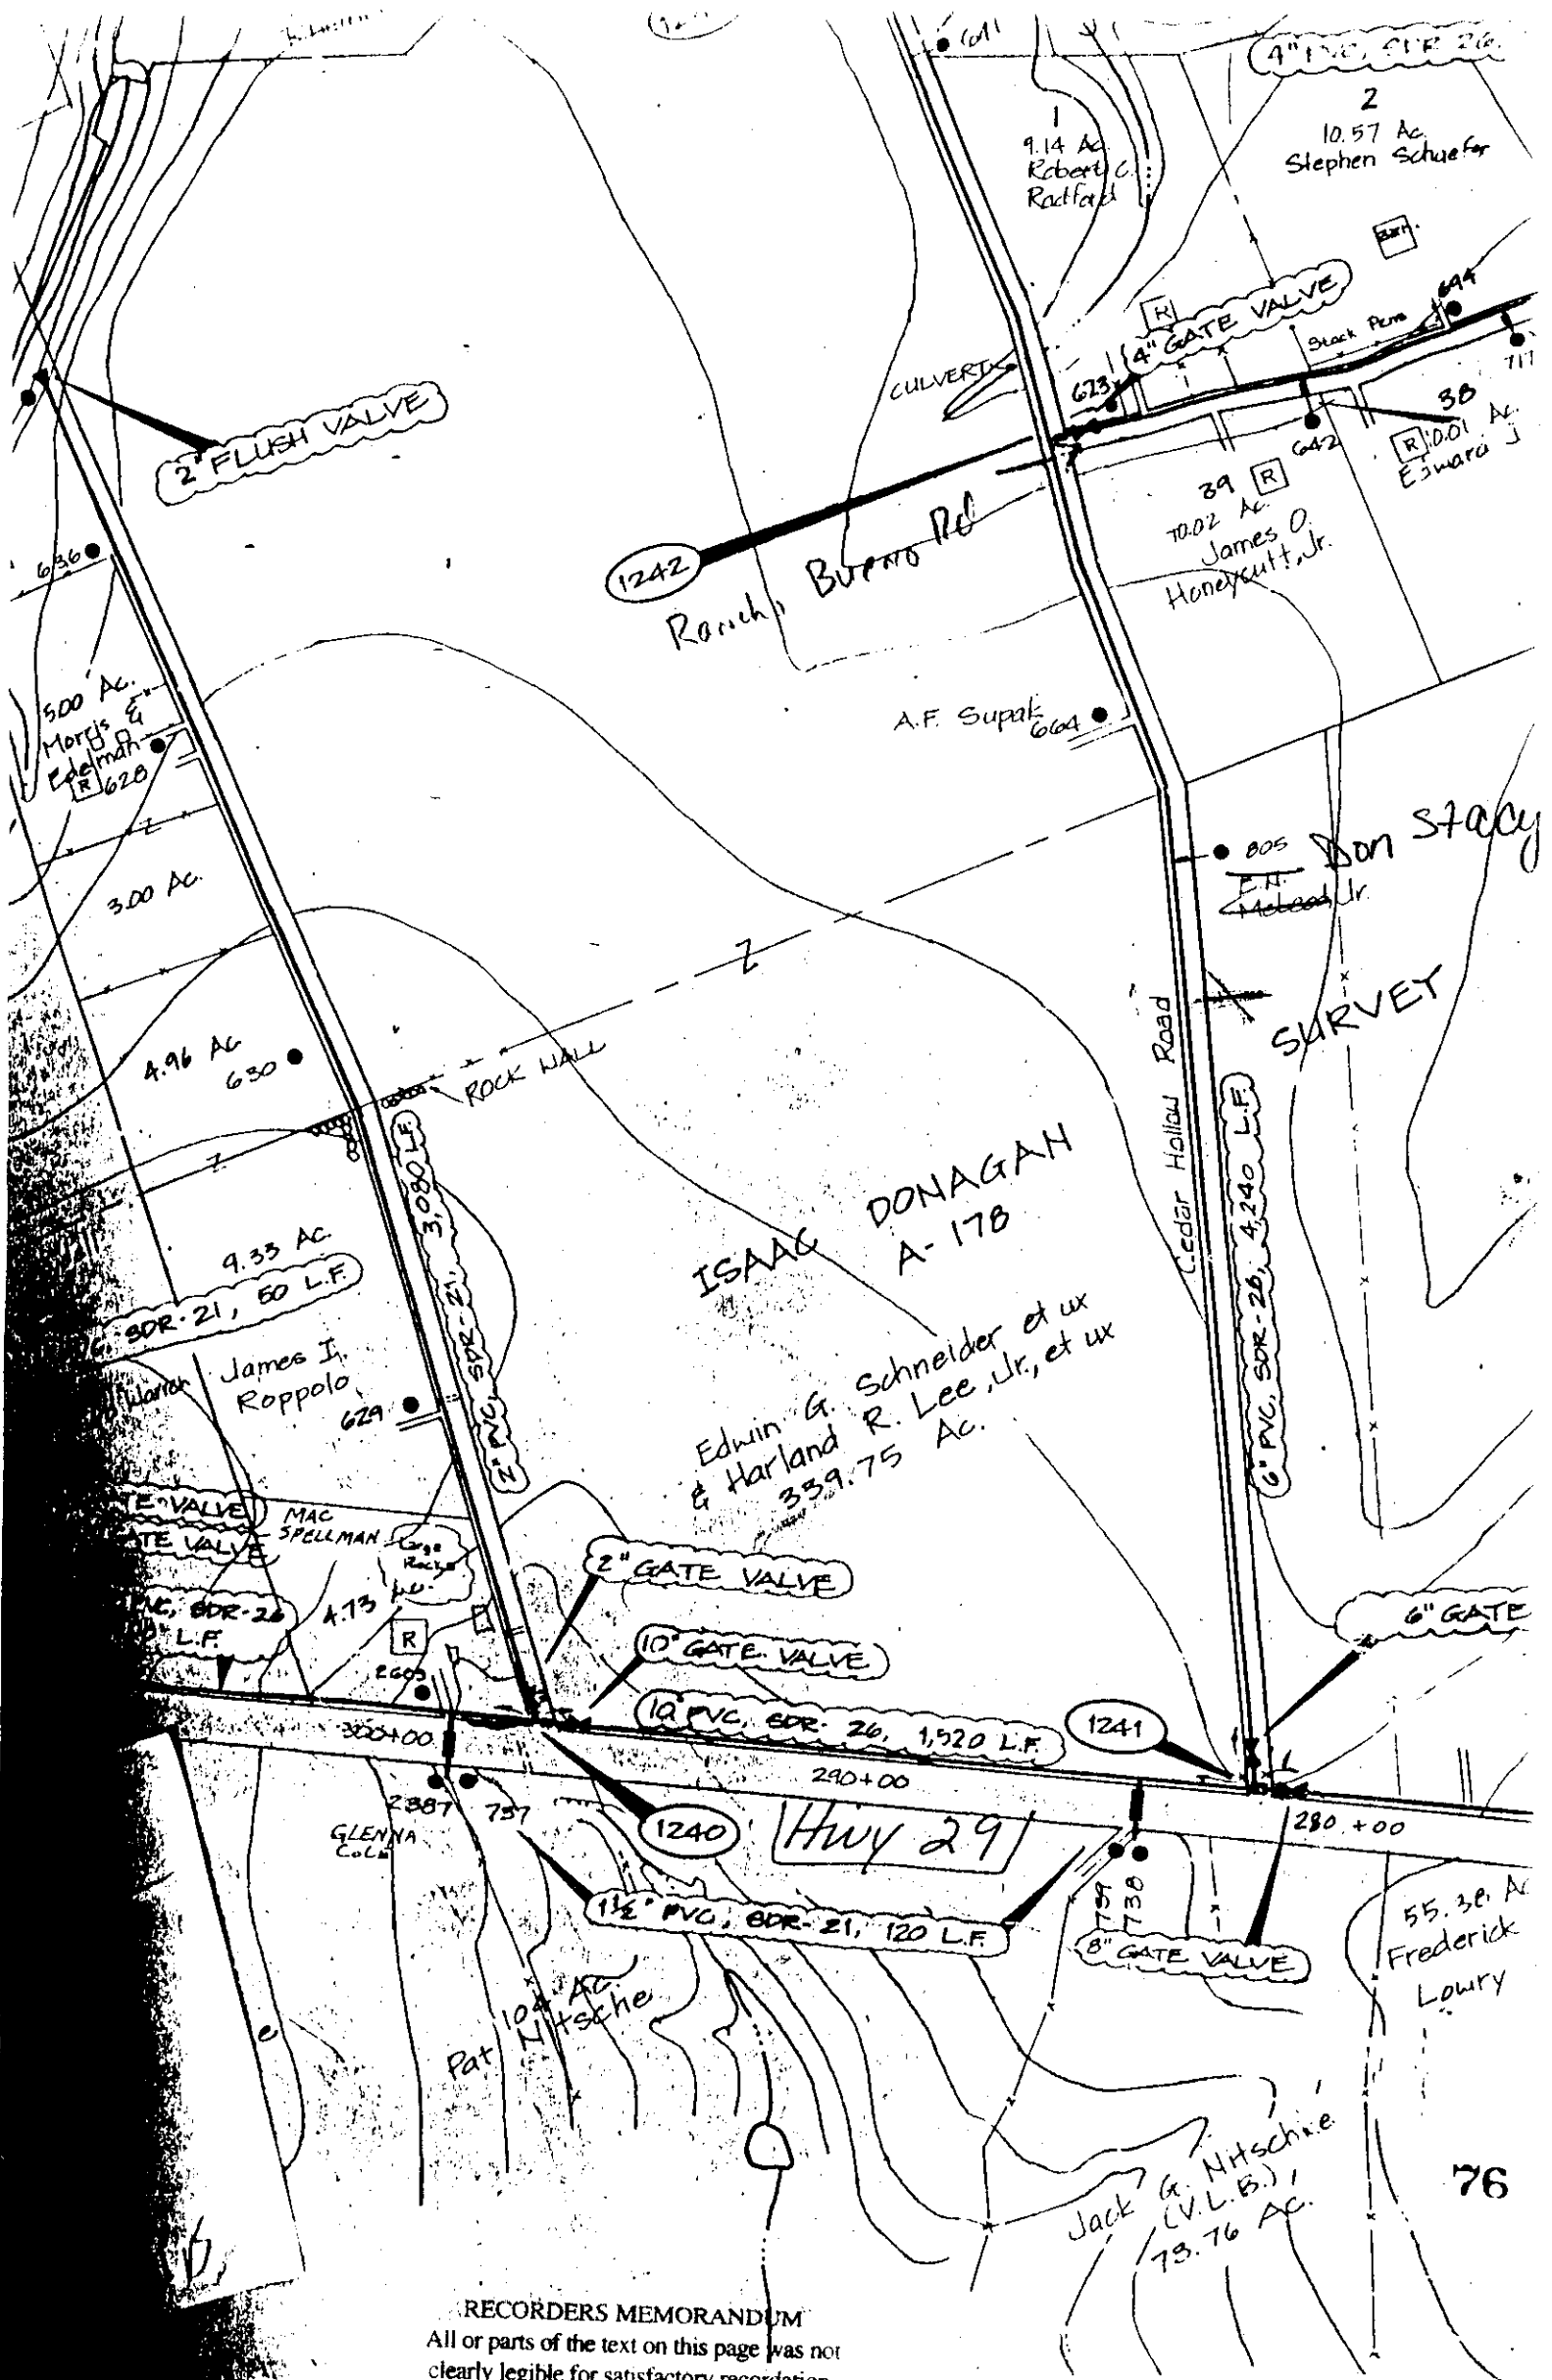 4" PVC, SDR 26
1
9.14 Ac.
Robert C.
Radford
2
10.57 Ac.
Stephen Schaefer
Barn.
R
4" GATE VALVE
694
Stock Pens
CULVERT
623
717
2" FLUSH VALVE
642
38
R 10.01 Ac.
Edward J
39 R
10.02 Ac.
James O.
Honeycutt, Jr.
1242
Rancho Bueno Rd
636
5.00 Ac.
Morris &
Edelman
R 628
A.F. Supak
664
805
Don Stacy
E.N.
McLeod, Jr.
3.00 Ac.
4.96 Ac
630
ROCK WALL
SURVEY
Cedar Hollow Road
6" PVC, SDR-26, 4,240 L.F.
2" PVC, SDR-21, 3,080 L.F.
ISAAC DONAGAN
A-178
9.33 Ac.
SDR-21, 50 L.F.
Warren
James I.
Roppolo
629
Edwin G. Schneider et ux
& Harland R. Lee, Jr., et ux
339.75 Ac.
TE VALVE
ATE VALVE
MAC
SPELLMAN
Large
Rocks
4.73 Ac.
R
PVC, SDR-26
L.F.
2" GATE VALVE
10" GATE VALVE
6" GATE
10" PVC, SDR-26, 1,520 L.F.
1241
300+00
290+00
280+00
2387
737
GLENNA
COLE
1240
Hwy 29
739
738
1½" PVC, SDR-21, 120 L.F.
8" GATE VALVE
55.38 Ac
Frederick
Lowry
104 Ac.
Pat Nitsche
Jack G. Nitschke
(V.L.B.)
73.76 Ac.
76
RECORDERS MEMORANDUM
All or parts of the text on this page was not
clearly legible for satisfactory recordation